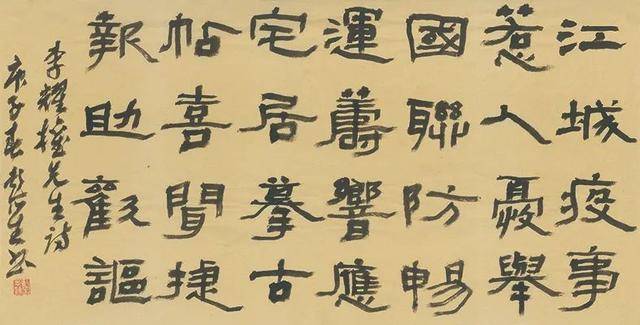 江城疫事
惹人憂舉
國聯防暢
運籌響應
宅居摹古
帖喜聞捷
報助歡謳
李耀先生詩
庚子春生書